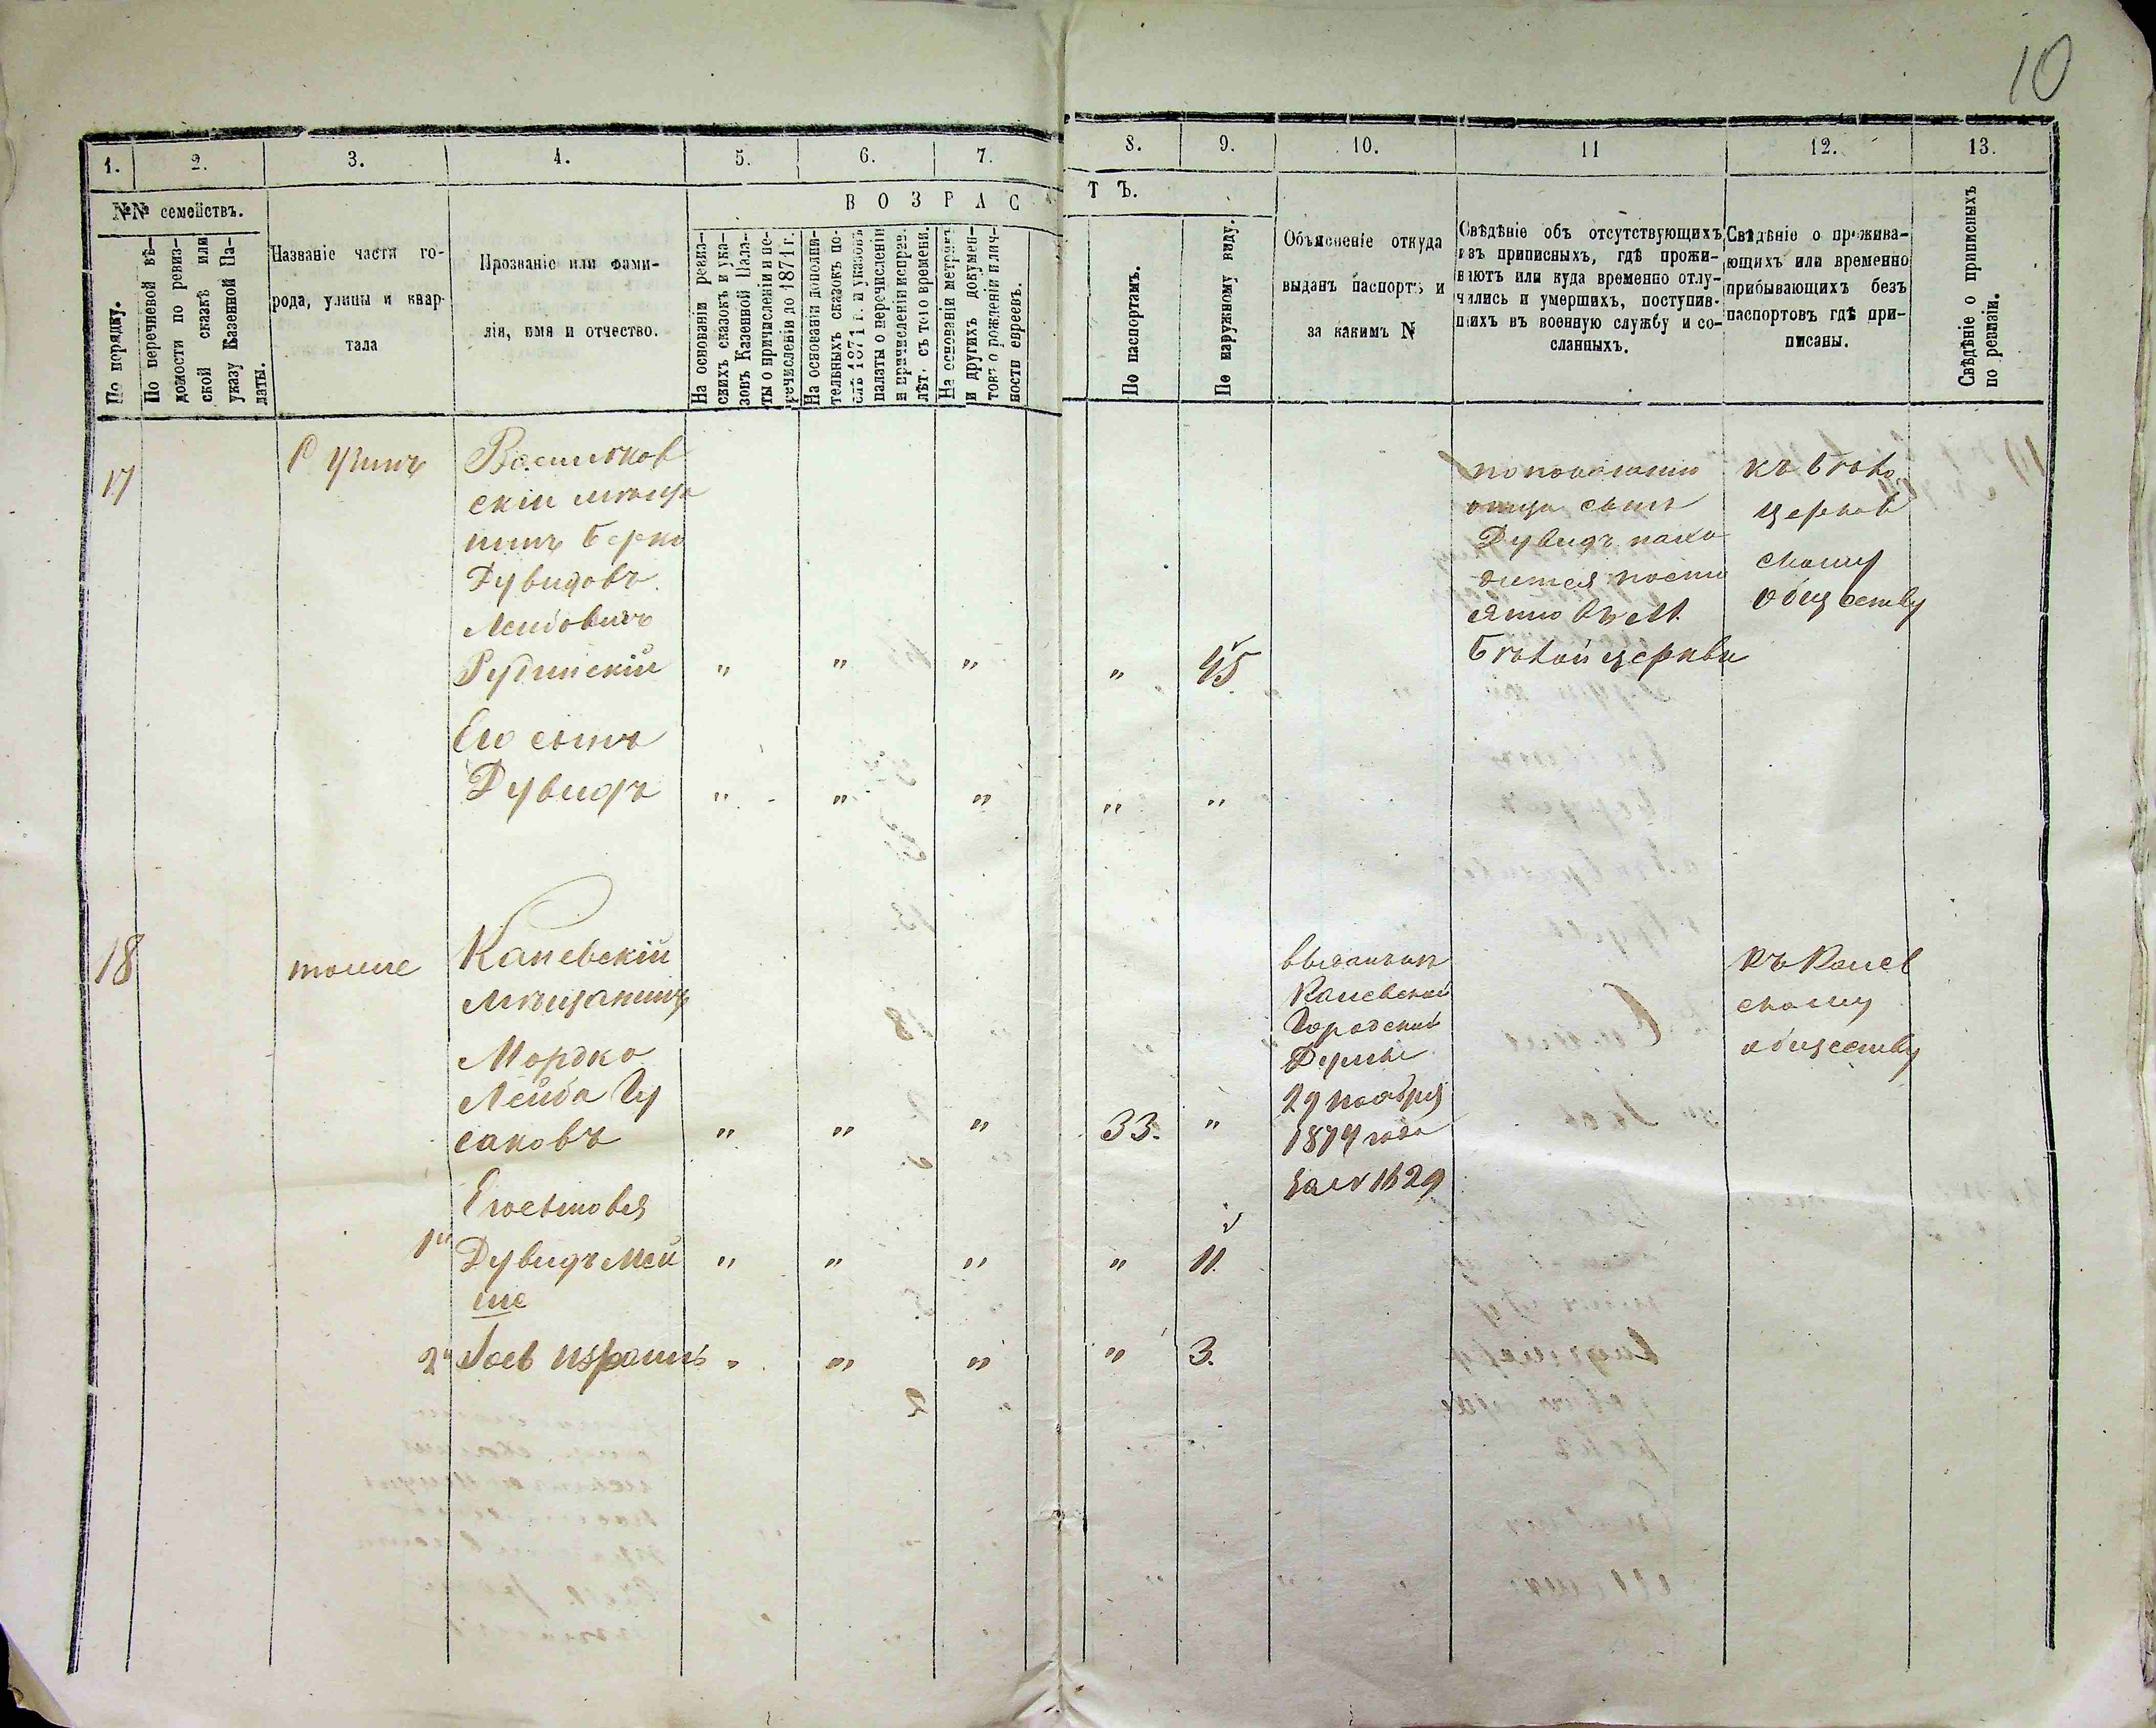 10
1. 2. 3. 4. 5. 6. 7. 8. 9. 10. 11 12. 13.
№№ семействъ.
По порядку.
По перечневой вѣ-
домости по ревиз-
ской сказкѣ или
указу Казенной Па-
латы.
Названіе части го-
рода, улицы и квар-
тала
Прозваніе или фами-
лія, имя и отчество.
ВОЗРАС
ТЪ.
На основаніи ревиз-
скихъ сказокъ и ука-
зовъ Казенной Пала-
ты о причисленіи и пе-
речисленіи до 1871 г.
На основаніи дополни-
тельныхъ сказокъ по-
слѣ 1871 г. и указовъ
палаты о перечисленіи
и причисленіи исправ.
лѣт. съ того времени.
На основаніи метрикъ
и другихъ докумен-
товъ о рожденіи и лич-
ности евреевъ.
По паспортамъ.
По наружному виду.
Объясненіе откуда
выданъ паспортъ и
за какимъ №
Свѣдѣніе объ отсутствующихъ
изъ приписныхъ, гдѣ прожи-
ваютъ или куда временно отлу-
чились и умершихъ, поступив-
шихъ въ военную службу и со-
сланныхъ.
Свѣдѣніе о прожива-
ющихъ или временно
прибывающихъ безъ
паспортовъ гдѣ при-
писаны.
Свѣдѣніе о приписныхъ
по ревизіи.
17
Васильков
скій мѣща
нинъ Берко
Дувидовъ
Лейбовичъ
" " " " 45
Его сынъ
Дувидъ " " " " "
отца сынъ
Дувидъ нахо
дится посто
янно въ М.
Бѣлой церкви
къ Бѣло
церков
скому
обществу
18 тоже Каневскій
мѣщанинъ
Мордко
Лейба Гу
саковъ " " " 33. "
Его сыновья
1й Дувидъ Мой " " " " 11.
ше
2й " " " " 3.
Каневской
Городской
Думы
29 ноября
1874 года
за № 1629
къ Канев
скому
обществу